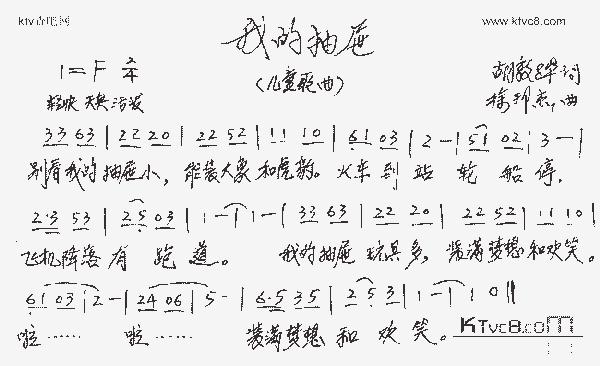 www.ktvc8.com
我的抽屉
1=F 2/4
(儿童歌曲)
轻快 天真 活泼
33 63 | 22 20 | 22 52 | 11 10 | 61 03 | 2 - | 51 02 | 3 - |
别看我的抽屉小，能装大象和虎豹。火车到站轮船停，
2·3 53 | 25 03 | 1 - | 1 - | 33 63 | 22 20 | 22 52 | 11 10 |
飞机降落有跑道。我的抽屉玩具多，装满梦想和欢笑。
61 03 | 2 - | 24 06 | 5 - | 6·5 35 | 25 3 | 1 - | 1 0 ‖
啦…… 啦…… 装满梦想和欢笑。
KTvc8.com